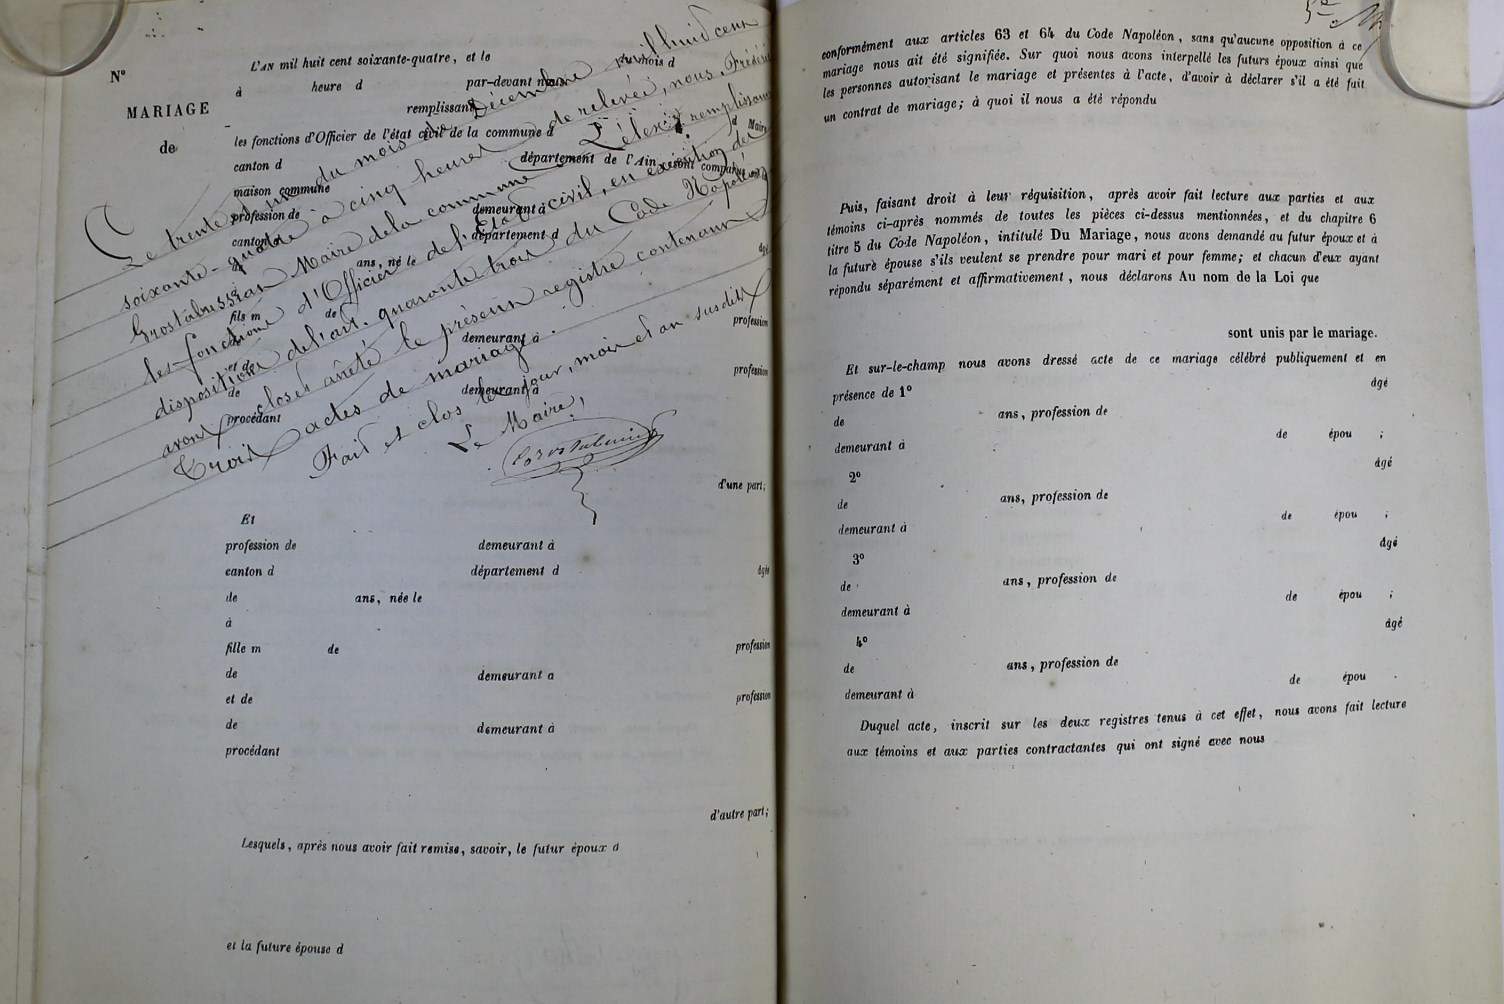 N°
MARIAGE
de
L'AN mil huit cent soixante-quatre, et le du mois d
à heure d par-devant nous
remplissant
les fonctions d'Officier de l'état civil de la commune d
canton d département de l'Ain, sont comparus d Maire
maison commune
profession de demeurant à
canton d département d
âgé
ans, né le
fils m de
profession
demeurant à
et de
profession
de demeurant à
procédant
d'une part;
Le trente et un du mois de Décembre mil huit cent
soixante-quatre à cinq heures de relevée, nous, Frédéric
Grostabussiat Maire de la commune de L'élex remplissant
les fonctions d'Officier de l'Etat civil, en exécution des
dispositions de l'art. quarante trois du Code Napoléon
avons clos et arrêté le présent registre contenant
Trois actes de mariage.
Fait et clos les jour, mois et an susdits
Le Maire,
Et
profession de demeurant à
canton d département d âgée
de ans, née le
à
fille m de profession
de demeurant a
et de profession
de demeurant à
procédant
d'autre part;
Lesquels, après nous avoir fait remise, savoir, le futur époux d
et la future épouse d
conformément aux articles 63 et 64 du Code Napoléon, sans qu'aucune opposition à ce
mariage nous ait été signifiée. Sur quoi nous avons interpellé les futurs époux ainsi que
les personnes autorisant le mariage et présentes à l'acte, d'avoir à déclarer s'il a été fait
un contrat de mariage; à quoi il nous a été répondu
Puis, faisant droit à leur réquisition, après avoir fait lecture aux parties et aux
témoins ci-après nommés de toutes les pièces ci-dessus mentionnées, et du chapitre 6
titre 5 du Code Napoléon, intitulé Du Mariage, nous avons demandé au futur époux et à
la future épouse s'ils veulent se prendre pour mari et pour femme; et chacun d'eux ayant
répondu séparément et affirmativement, nous déclarons Au nom de la Loi que
sont unis par le mariage.
Et sur-le-champ nous avons dressé acte de ce mariage célébré publiquement et en
présence de 1° âgé
de ans, profession de
demeurant à de épou ;
2° âgé
de ans, profession de
demeurant à de épou ;
3° âgé
de ans, profession de
demeurant à de épou ;
4° âgé
de ans, profession de
demeurant à de épou .
Duquel acte, inscrit sur les deux registres tenus à cet effet, nous avons fait lecture
aux témoins et aux parties contractantes qui ont signé avec nous